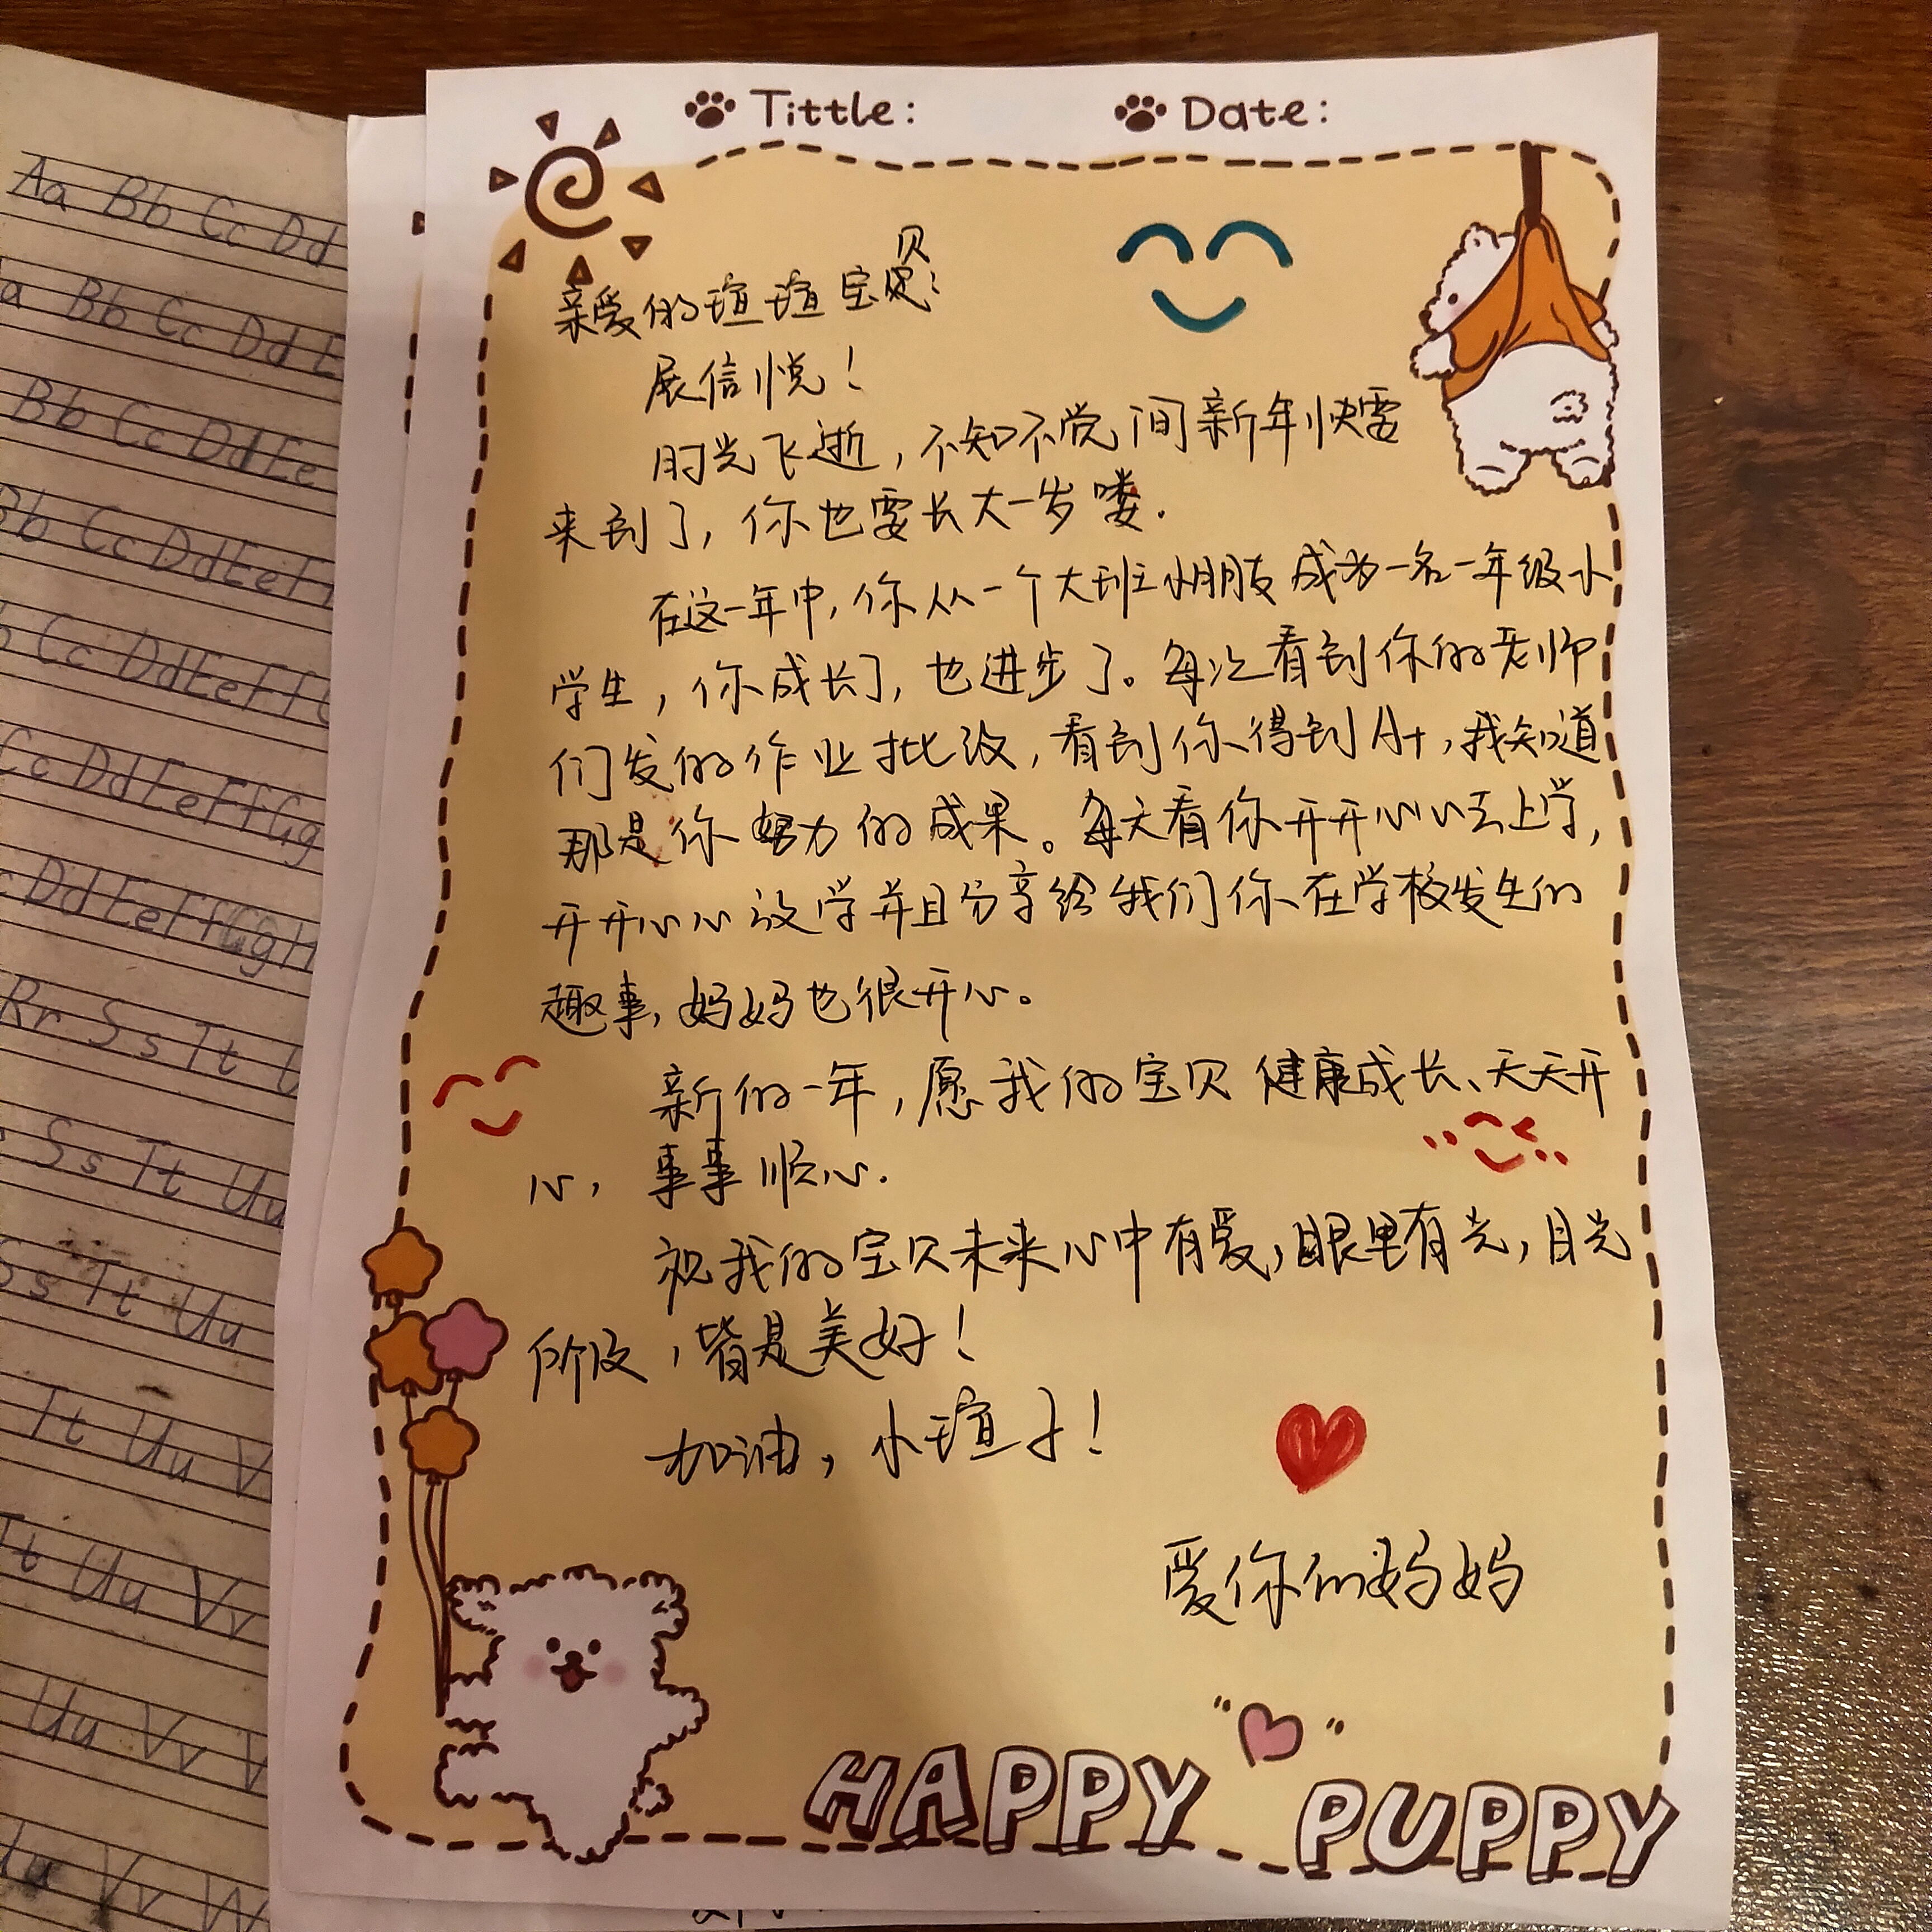 Tittle:
Date:
亲爱的瑄瑄宝贝:
展信悦!
时光飞逝,不知不觉间新年快要
来到了,你也要长大一岁喽.
在这一年中,你从一个大班小朋友成为一名一年级小
学生,你成长了,也进步了。每次看到你的老师
们发的作业批改,看到你得到A+,我知道
那是你努力的成果。每天看你开开心心去上学,
开开心心放学并且分享给我们你在学校发生的
趣事,妈妈也很开心。
新的一年,愿我的宝贝健康成长、天天开
心,事事顺心.
祝我的宝贝未来心中有爱,眼里有光,目光
所及,皆是美好!
加油,小瑄子!
爱你的妈妈
HAPPY PUPPY
Aa Bb Cc Dd
a Bb Cc Dd E
Bb Cc Dd Ee
Bb Cc Dd Ee F
Cc Dd Ee Ff
Cc Dd Ee Ff Gg
Dd Ee Ff Gg H
Rr Ss Tt U
Ss Tt Uu
Ss Tt Uu
Tt Uu V
Tt Uu Vv
Uu Vv V
Uu Vv W